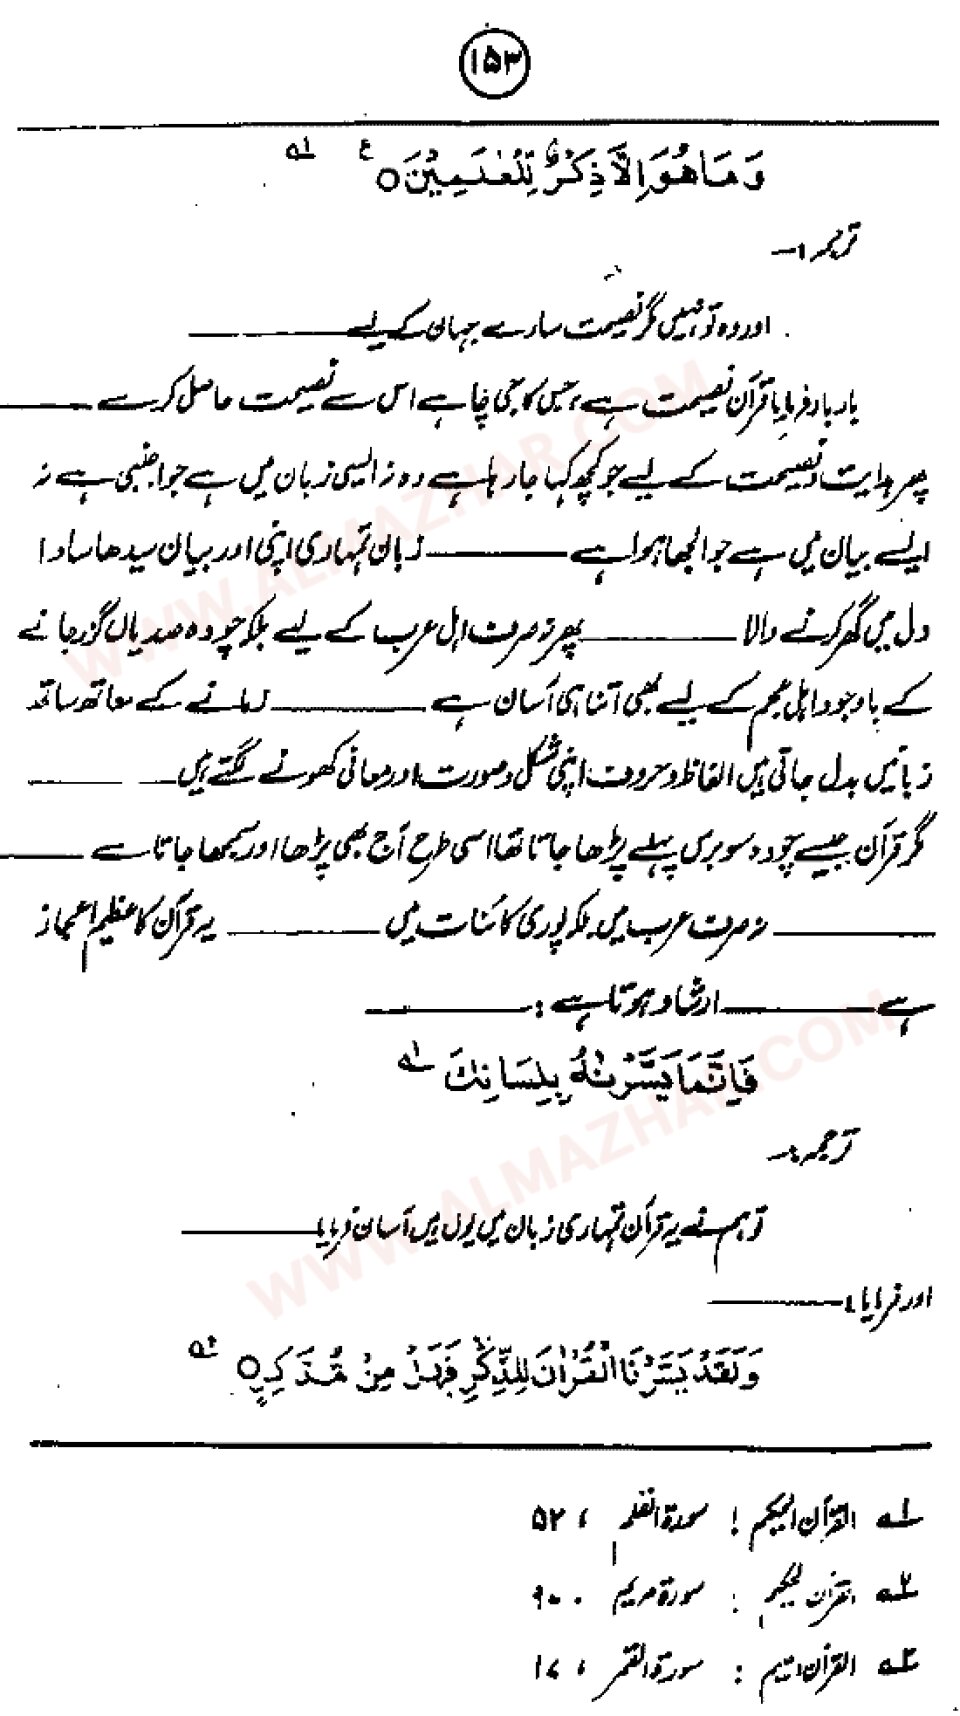 ۱۵۳
وَمَا هُوَ اِلَّا ذِكْرٌ لِّلْعٰلَمِيْنَ ○ ع ۱ے
ترجمہ :—
اور وہ تو نہیں مگر نصیحت سارے جہان کے لیے ———
بار بار فرمایا قرآن نصیحت ہے، جس کا جی چاہے اس سے نصیحت حاصل کرے ———
پھر ہدایت و نصیحت کے لیے جو کچھ کہا جا رہا ہے وہ نہ ایسی زبان میں ہے جو اجنبی ہے نہ
ایسے بیان میں ہے جو الجھا ہوا ہے ——— زبان تمہاری اپنی اور بیان سیدھا سادا
دل میں گھر کرنے والا ——— پھر نہ صرف اہل عرب کے لیے بلکہ چودہ صدیاں گزر جانے
کے باوجود اہل عجم کے لیے بھی اتنا ہی آسان ہے ——— زمانے کے ساتھ ساتھ
زبانیں بدل جاتی ہیں الفاظ و حروف اپنی شکل و صورت اور معانی کھونے لگتے ہیں ———
مگر قرآن جیسے چودہ سو برس پہلے پڑھا جاتا تھا اسی طرح آج بھی پڑھا اور سمجھا جاتا ہے ———
——— نہ صرف عرب میں بلکہ پوری کائنات میں ——— یہ قرآن کا عظیم اعجاز
ہے ——— ارشاد ہوتا ہے : ———
فَاِنَّمَا يَسَّرْنٰهُ بِلِسَانِكَ
ترجمہ :—
تو ہم نے یہ قرآن تمہاری زبان میں یوں ہی آسان فرمایا ———
اور فرمایا : ———
وَلَقَدْ يَسَّرْنَا الْقُرْاٰنَ لِلذِّكْرِ فَهَلْ مِنْ مُّدَّكِرٍ ○
۱ے القرآن الحکیم : سورۃ القلم ، ۵۲
۲ے القرآن الحکیم : سورۃ مریم
۳ے القرآن : سورۃ القمر ، ۱۷
WWW.ALMAZHAR.COM
WWW.ALMAZHAR.COM